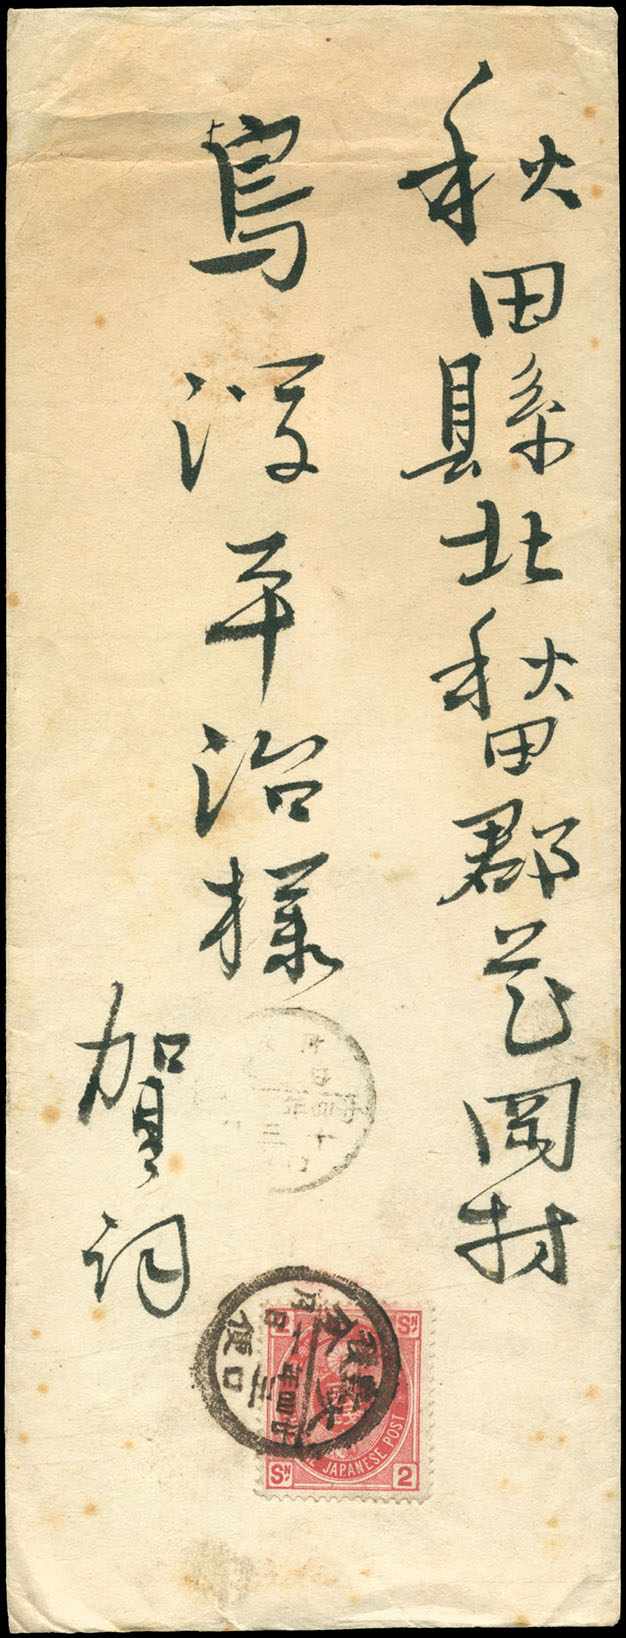 秋田縣北秋田郡花岡村
鳥潟平治様
賀詞
2 SN
JAPANESE POST
SN 2